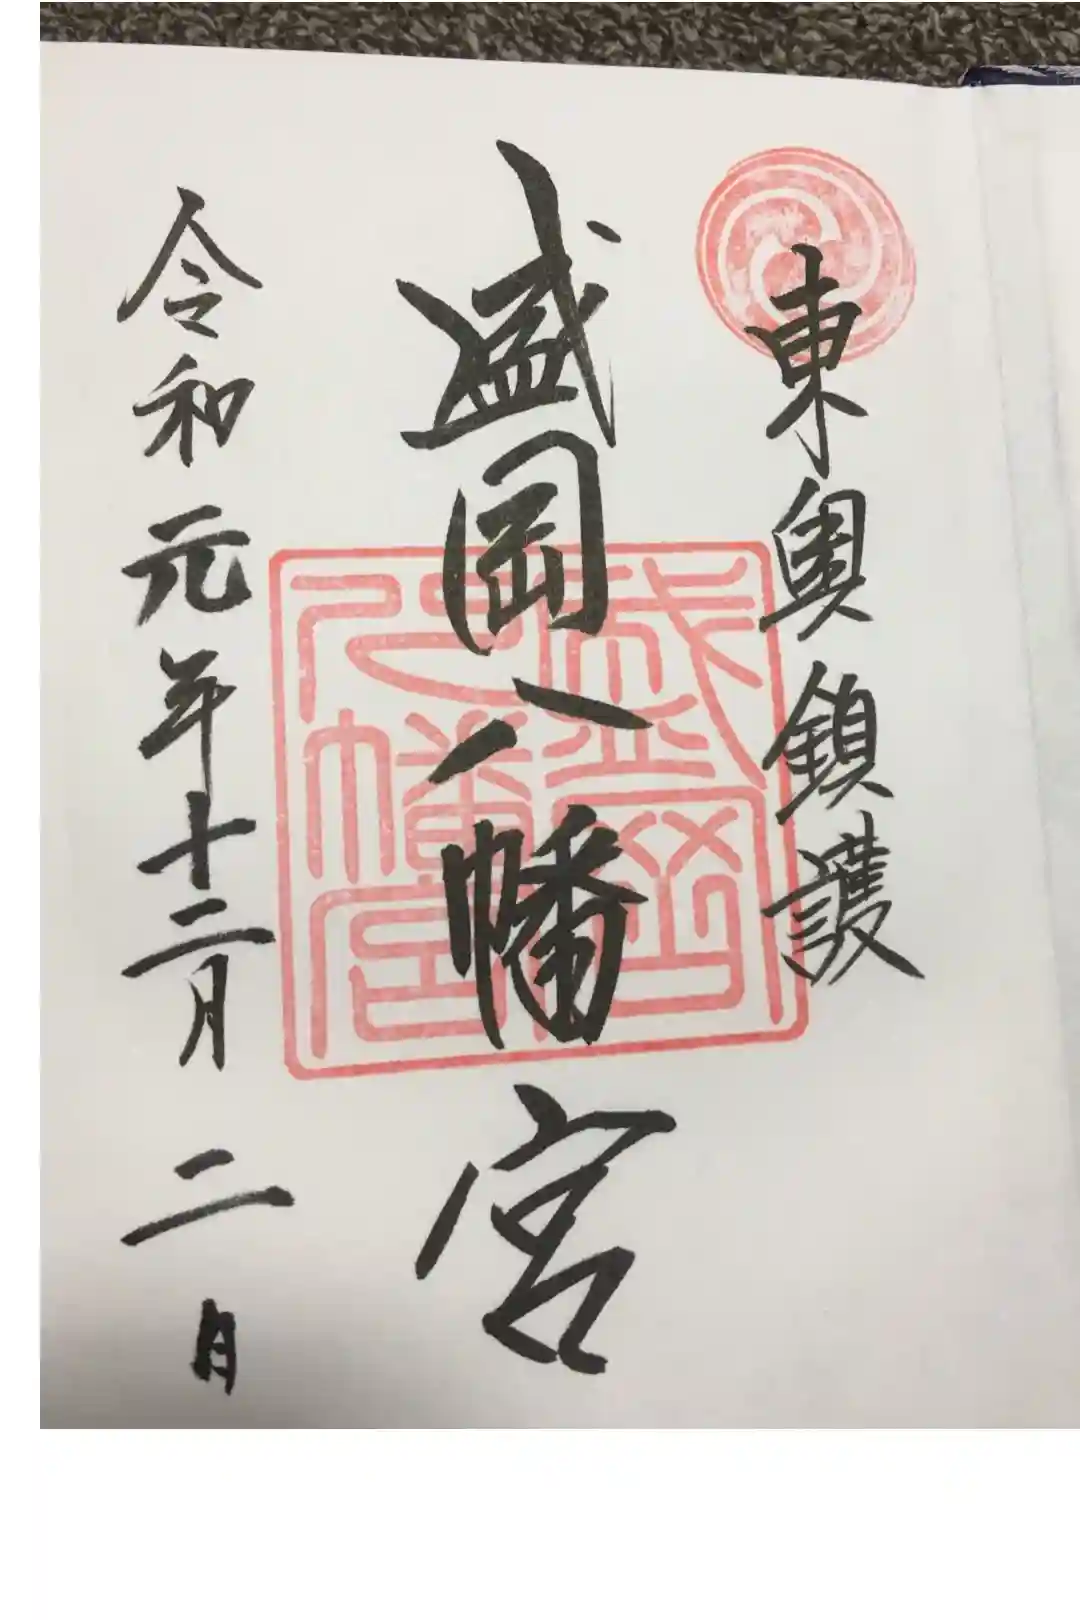 東奥鎮護
盛岡八幡宮
令和元年十二月二日
盛岡八幡宮